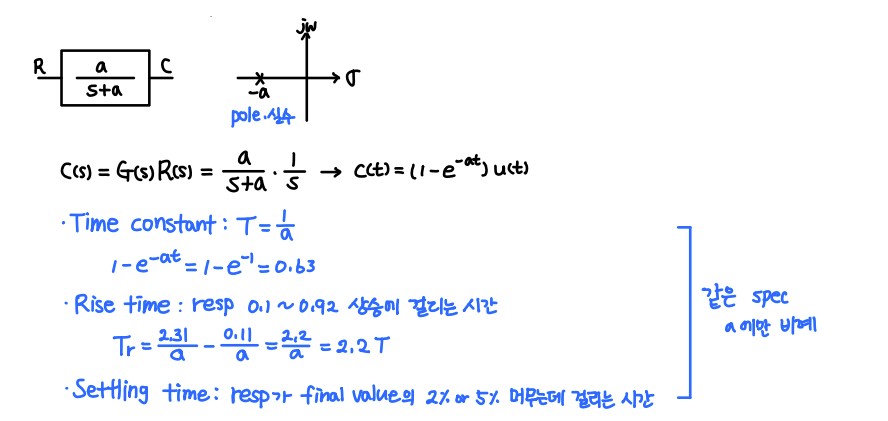 jω
R a/(s+a) C
σ
-a
pole·실수
C(s) = G(s)R(s) = a/(s+a) · 1/s → c(t) = (1-e^{-at})u(t)
·Time constant : T = 1/a
1-e^{-at} = 1-e^{-1} = 0.63
·Rise time : resp 0.1 ~ 0.92 상승에 걸리는 시간
Tr = 2.31/a - 0.11/a = 2.2/a = 2.2T
·Settling time : resp가 final value의 2% or 5% 머무는데 걸리는 시간
같은 spec
a에만 비례